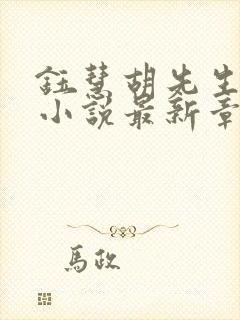 鈺慧胡先生
小说最新章
馬政